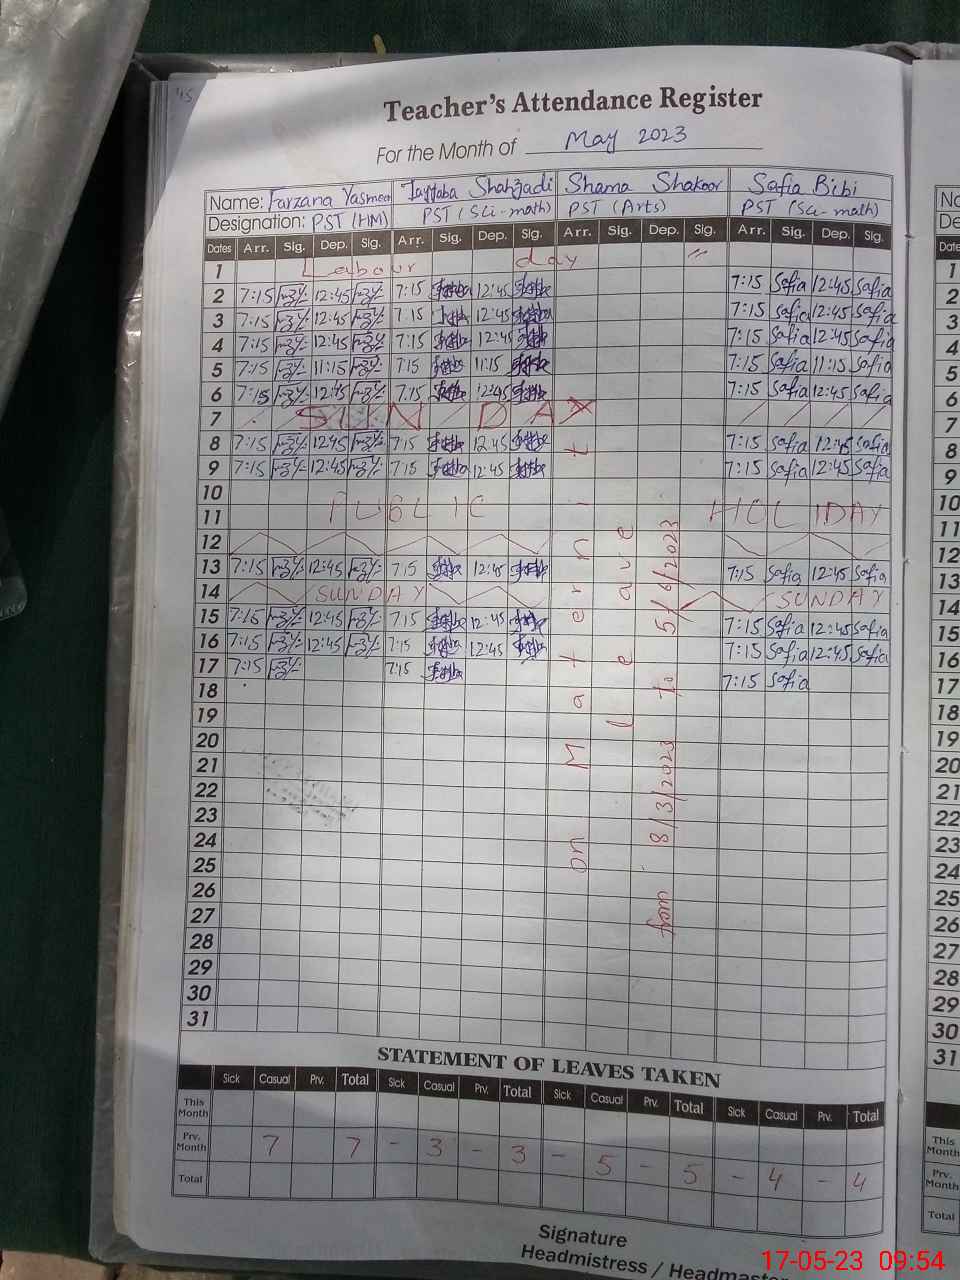 45
Teacher's Attendance Register
For the Month of May 2023
Name: Farzana Yasmeen Tayyaba Shahzadi Shama Shakoor Safia Bibi
Designation: PST (HM) PST (Sci-math) PST (Arts) PST (Sci-math)
Dates Arr. Sig. Dep. Sig. Arr. Sig. Dep. Sig. Arr. Sig. Dep. Sig. Arr. Sig. Dep. Sig.
1 Labour day 〃
2 7:15 12:45 7:15 12:45 7:15 Safia 12:45 Safia
3 7:15 12:45 7:15 12:45 7:15 Safia 12:45 Safia
4 7:15 12:45 7:15 12:45 7:15 Safia 12:45 Safia
5 7:15 11:15 7:15 11:15 7:15 Safia 11:15 Safia
6 7:15 12:45 7:15 12:45 7:15 Safia 12:45 Safia
7 SUNDAY
8 7:15 12:45 7:15 12:45 7:15 Safia 12:45 Safia
9 7:15 12:45 7:15 12:45 7:15 Safia 12:45 Safia
10
11 PUBLIC HOLIDAY
12
13 7:15 12:45 7:15 12:45 7:15 Safia 12:45 Safia
14 SUNDAY SUNDAY
15 7:15 12:45 7:15 12:45 7:15 Safia 12:45 Safia
16 7:15 12:45 7:15 12:45 7:15 Safia 12:45 Safia
17 7:15 7:15 7:15 Safia
18
19
20
21
22
23
24
25
26
27
28
29
30
31
on Maternity
leave
from 8/3/2023 to 5/6/2023
STATEMENT OF LEAVES TAKEN
Sick Casual Prv. Total Sick Casual Prv. Total Sick Casual Prv. Total Sick Casual Prv. Total
This Month
Prv. Month 7 7 - 3 - 3 - 5 - 5 - 4 - 4
Total
Signature
Headmistress / Headmaster
1
2
3
4
5
6
7
8
9
10
11
12
13
14
15
16
17
18
19
20
21
22
23
24
25
26
27
28
29
30
31
This Month
Prv. Month
Total
17-05-23 09:54